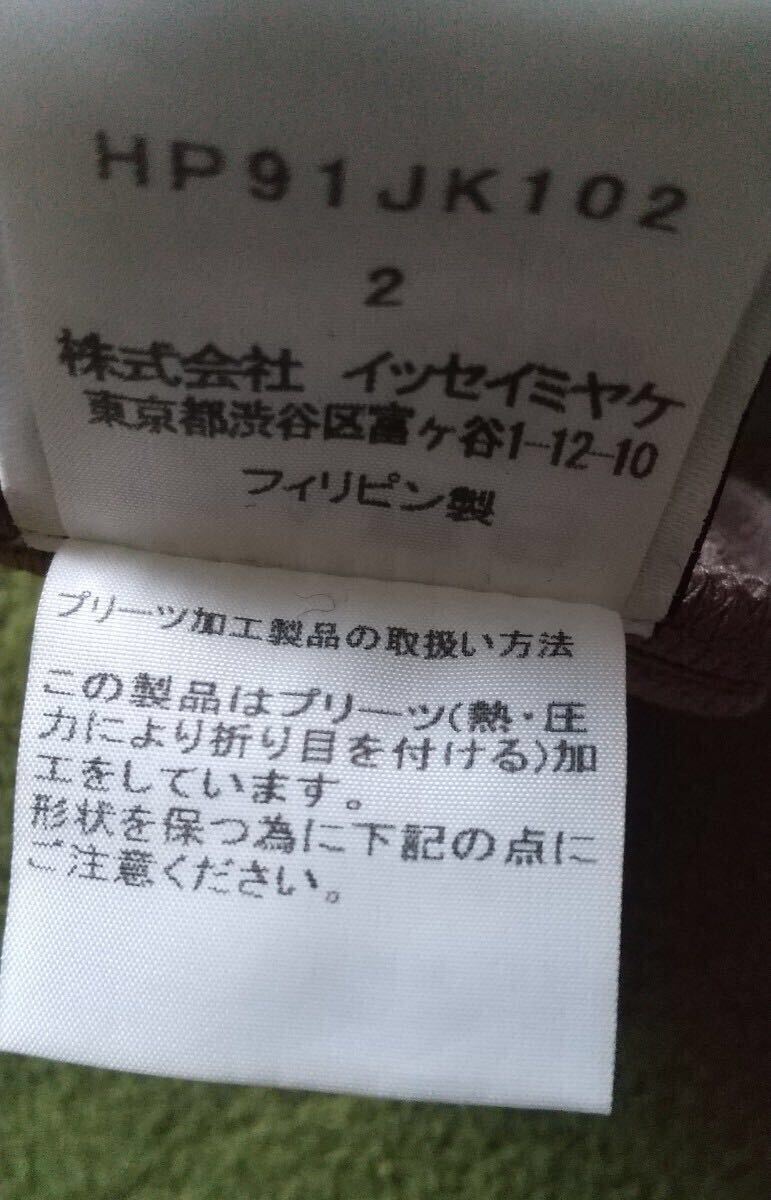 HP91JK102
2
株式会社 イッセイミヤケ
東京都渋谷区富ヶ谷1-12-10
フィリピン製
プリーツ加工製品の取扱い方法
この製品はプリーツ(熱・圧
力により折り目を付ける)加
工をしています。
形状を保つ為に下記の点に
ご注意ください。